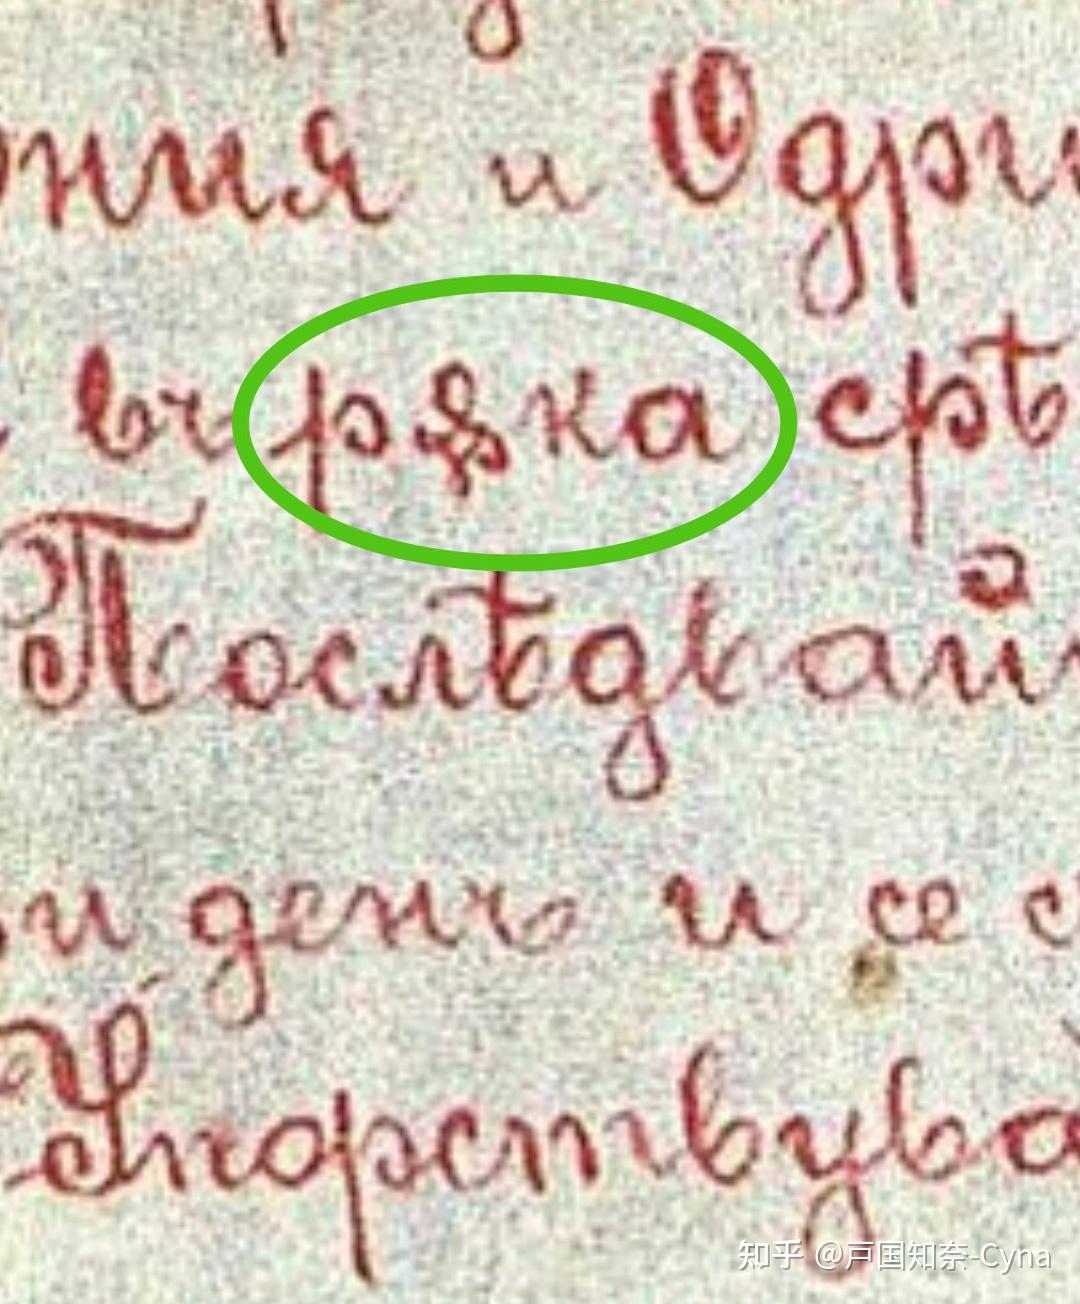 ония и Одри
въ рѫка срѣ
Послѣдвай
и день и се с
Упорствува
知乎 @戸国知奈-Cyna